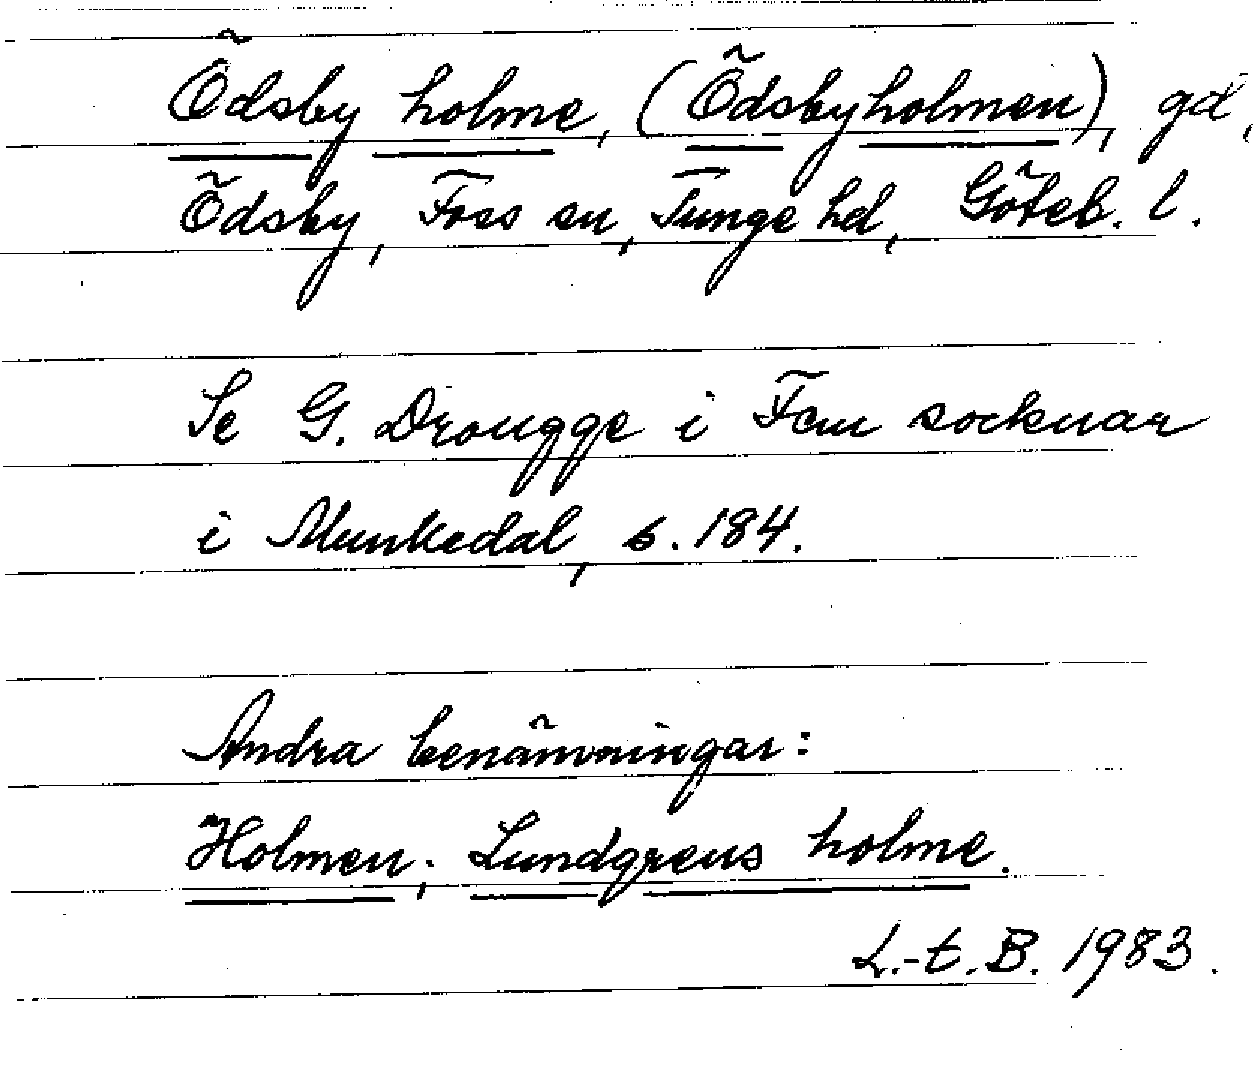 Ödsby holme, (Ödsbyholmen), gd,
Ödsby, Foss sn, Tunge hd, Göteb. l.
Se G. Drougge i Fem socknar
i Munkedal, s. 184.
Andra benämningar:
Holmen; Lundgrens holme.
L.-t. B. 1983.